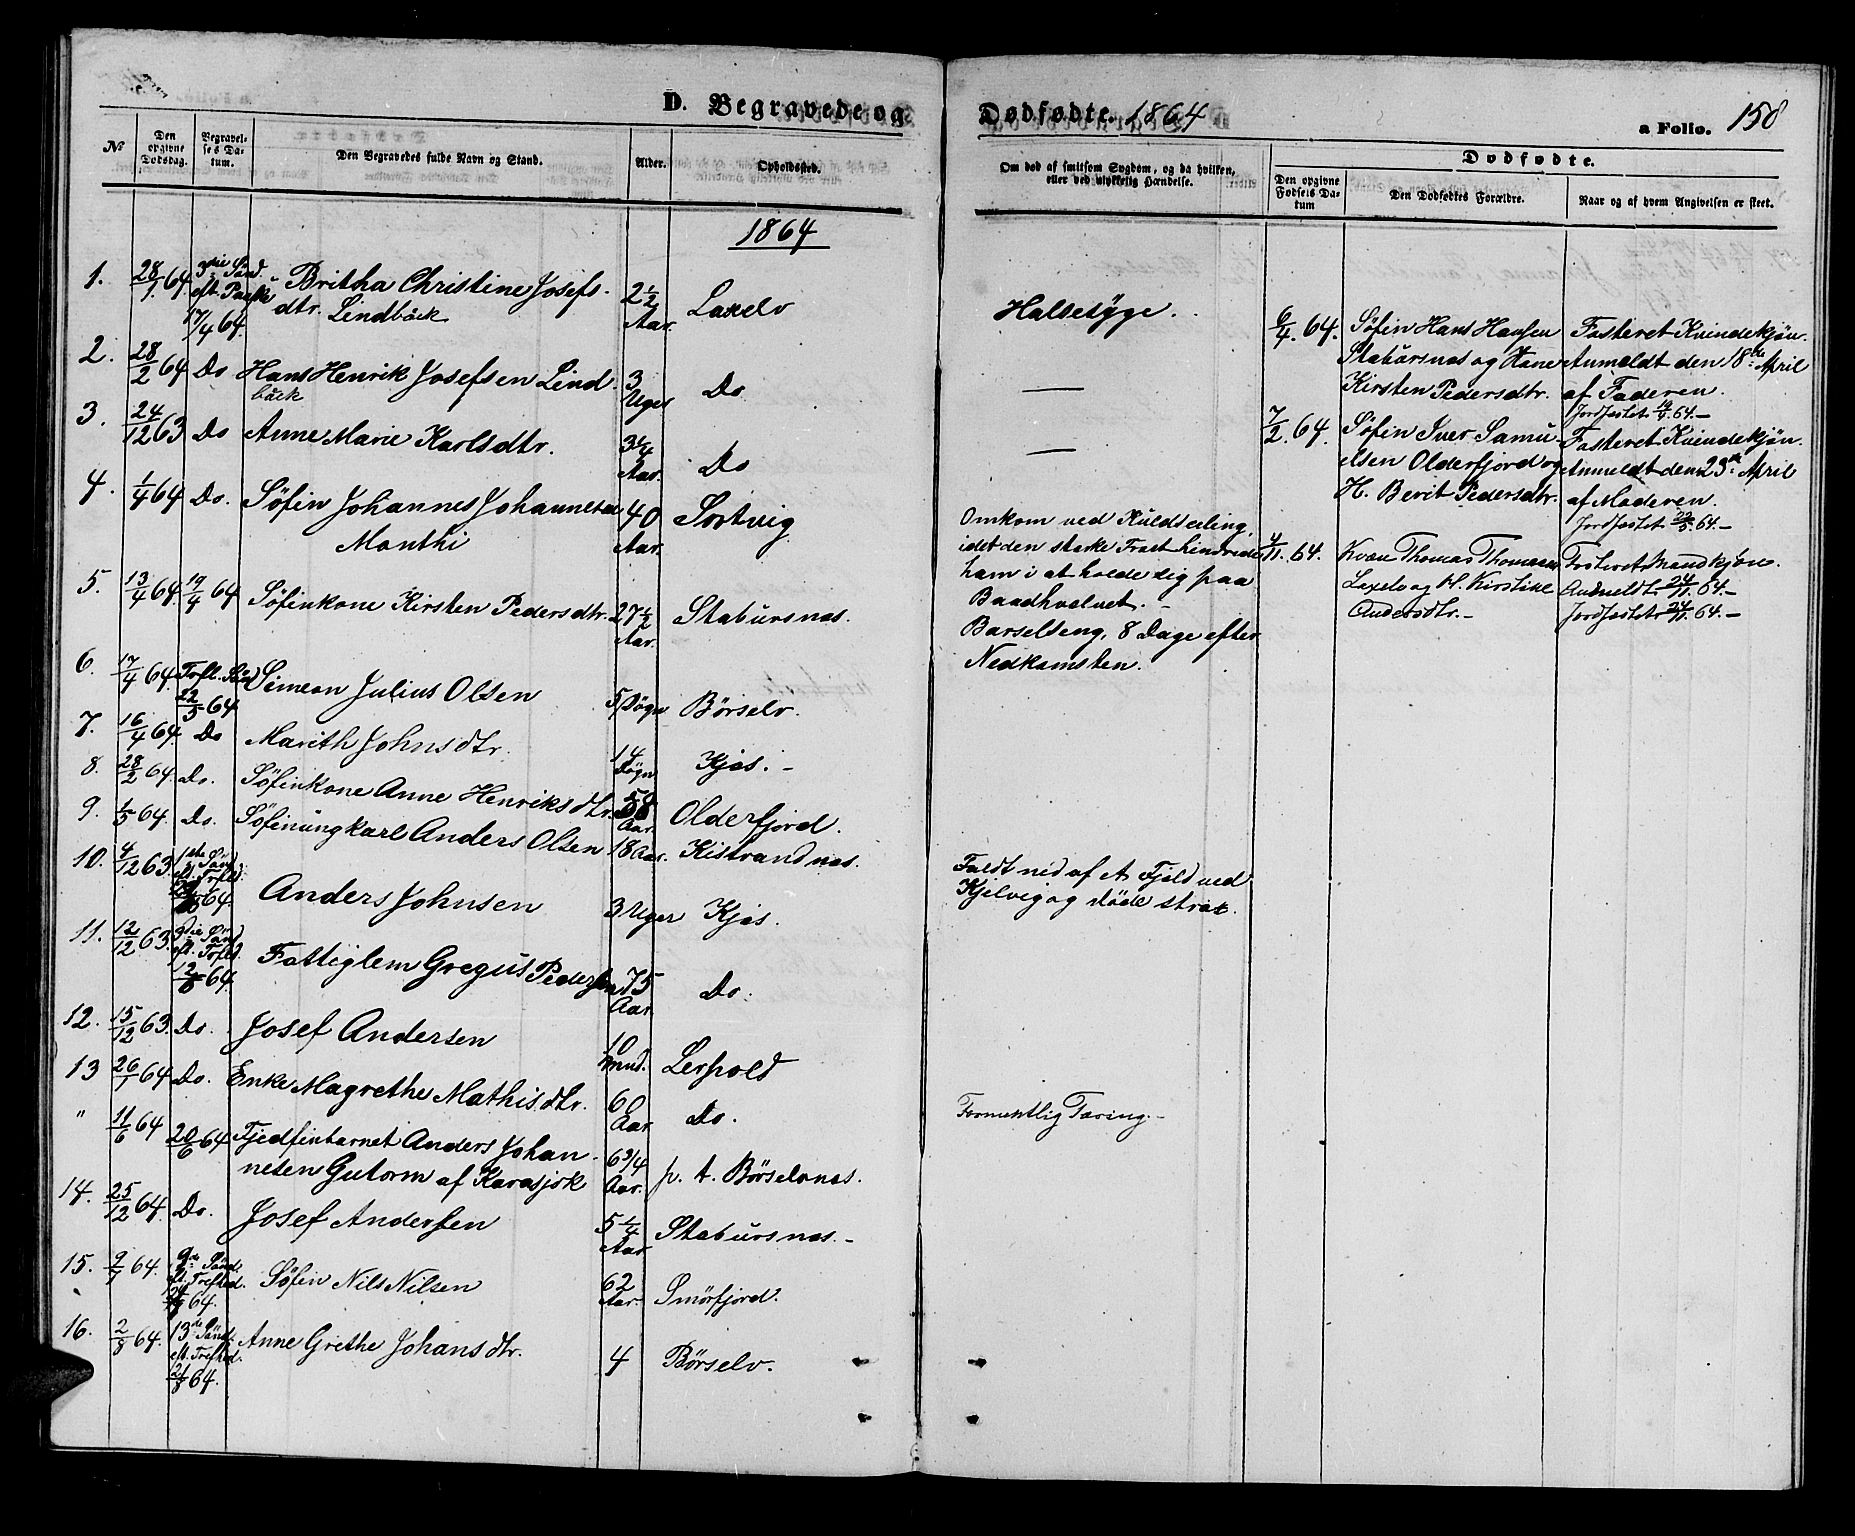 D. Begravede og Dødfødte. 1864
a Folio. 158
No
Den opgivne Dødsdag.
Begravelses Datum.
Den Begravedes fulde Navn og Stand.
Alder.
Opholdssted.
Om død af smitsom Sygdom, og da hvilken, eller ved ulykkelig Hændelse.
Dødfødte.
Den opgivne Fødsels Datum
Den Dødfødtes Forældre.
Naar og af hvem Angivelsen er skeet.
1864
1. 28/1 64. 3die Sönd. eft. Paaske 17/4 64. Britha Christine Josefs-
dtr. Lindbäck 2 1/2 Aar. Laxelv Halsesyge.
2. 28/2 64 Do Hans Henrik Josefsen Lind-
bäck 3 Uger Do —
3. 24/12 63 Do Anne Marie Karlsdtr. 3 1/4 Aar. Do —
4. 1/4 64 Do. Söfin Johannes Johannesen
Monthi 40 Aar. Sortvig
Omkom ved Kuldseiling,
idet den stærke Frost hindrede
ham i at holde sig paa
Baadhvalvet. -
5. 13/4 64. 19/4 64 Söfinkone Kirsten Pedersdtr. 27 1/2 Aar. Stabursnæs.
Barselseng, 8 Dage efter
Nedkomsten.
6. 17/4 64 Trfl. Sönd 22/5 64 Simeon Julius Olsen 5 Døgn Börselv.
7. 16/4 64. Do Marith Johnsdtr. 14 Døgn Kjæs. -
8. 28/2 64. Do. Söfinkone Anne Henriksdtr. 58 Aar. Olderfjord.
9. 1/5 64. Do. Söfinungkarl Anders Olsen 18 Aar. Kistrandnæs.
Faldt ned af et Fjeld ved
Kjelvig og døde strax.
10. 4/12 63. 1ste Sönd eft. Trfld. 64. Anders Johnsen 3 Uger Kjæs.
11. 12/12 63. 3die Sönd eft. Trfld. 12/6 64. Fattiglem Gregus Pedersen 75 Aar. Do.
12. 15/12 63. Do. Josef Andersen 10 Mnd. Lerpold
13 26/1 64 Do. Enke Magrethe Mathisdtr. 60 Aar Do. Formentlig Tæring. -
" 11/6 64 20/6 64 Fjedfinbarnet Anders Johan-
nesen Gutorm af Karasjok 6 3/4 Aar. p. t. Börselvnæs.
14. 25/12 64. Do. Josef Andersen 5 1/4 Aar Stabursnæs. -
15. 9/7 64. 9de Sönd. eft. Trefhed. 64. Söfin Nils Nilsen 62 Aar. Smörfjord.
16. 2/8 64. 13de Sönd. eft. Trefhed. 21/8 64. Anne Grethe Johansdtr. 4 Börselv.
6/4. 64. Söfin Hans Hansen
Stabursnæs og Kone
Kirsten Pedersdtr.
Fosteret Kvindekjön.
Anmeldt den 18de April
af Faderen.
Jordfæstet 19/4 64. -
7/2. 64. Söfin Iver Samu-
elsen Olderfjord og
H. Berit Pedersdtr.
Fosteret Kvindekjön.
Anmeldt den 23de April
af Moderen.
Jordfæstet 22/5 64. -
4/11. 64. Kvæn Thomas Thomasen
Laxelv og H. Kirstine
Andersdtr. -
Fosteret Mandkjön.
Anmeldt 24/11 64. -
Jordfæstet 24/11 64. -